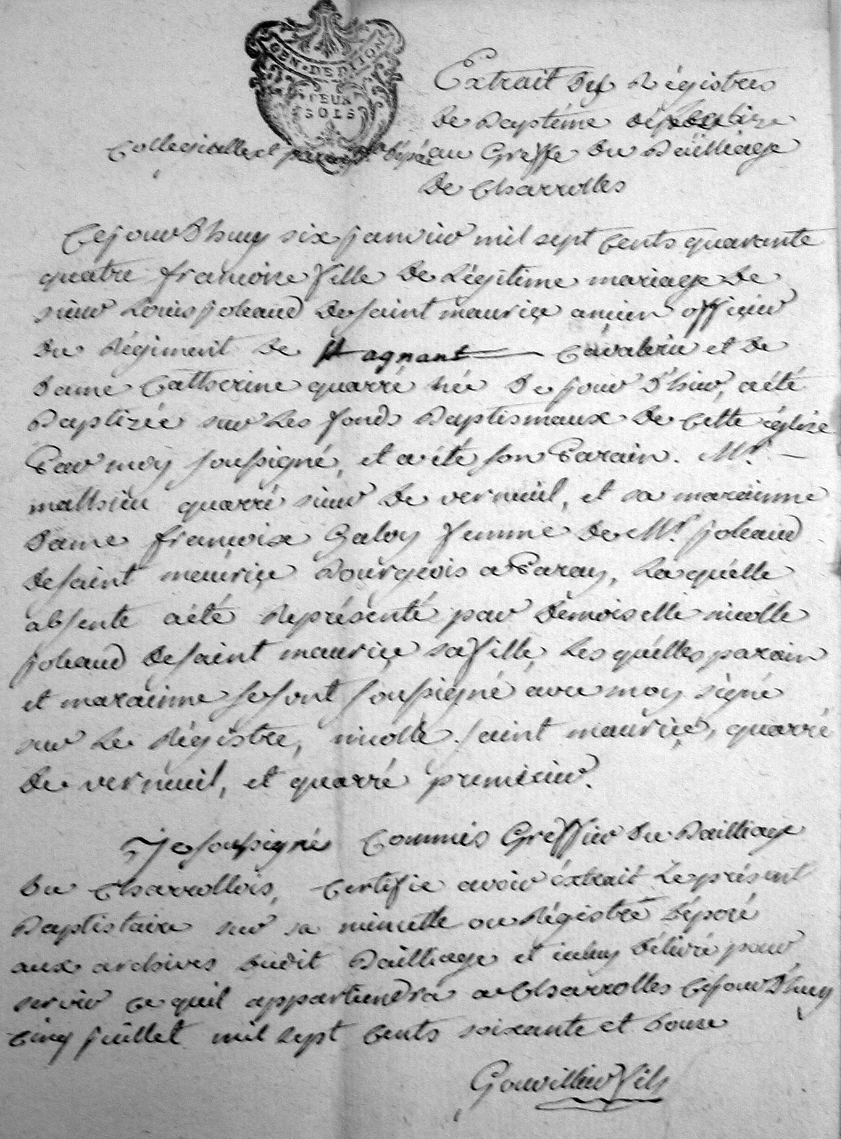 GEN. DE DIJON
DEUX
SOLS
Extrait des Régistres
de Baptéme de
Collegialle et déposé au Greffe du Bailliage
de Charrolles
Cejourd'huy six janvier mil sept cents quarante
quatre francoise fille de Légitime mariage de
sieur Louis joleaud de saint maurice ancien officier
du Régiment de Cavalerie et de
Dame Catherine quarré née de jour d'huy, a été
Baptizée sur les fonds Baptismaux de cette église
Par moy soussigné, et a été son Parain. Mr. —
mathieu quarré sieur de verneuil, et sa marainne
Dame francoise femme de Mr. joleaud
de saint maurice Bourgeois a Paray, Laquélle
absente a été Représenté par demoiselle nicolle
joleaud de saint maurice sa fille, Lesquélles parain
et marainne se sont soussigné avec moy signé
sur Le Régistre, nicolle saint maurice, quarré
de verneuil, et quarré premicier.
Je soussigné Commis Greffier du Bailliage
du Charrollois, Certifie avoir éxtrait Le présent
Baptistaire sur sa minutte ou Régistre déposé
aux archives dudit Bailliage et iceluy délivré pour
servir ce quil appartiendra a Charrolles Cejourd'huy
Cinq juillet mil sept cents soixante et douze
Gouvillier fils